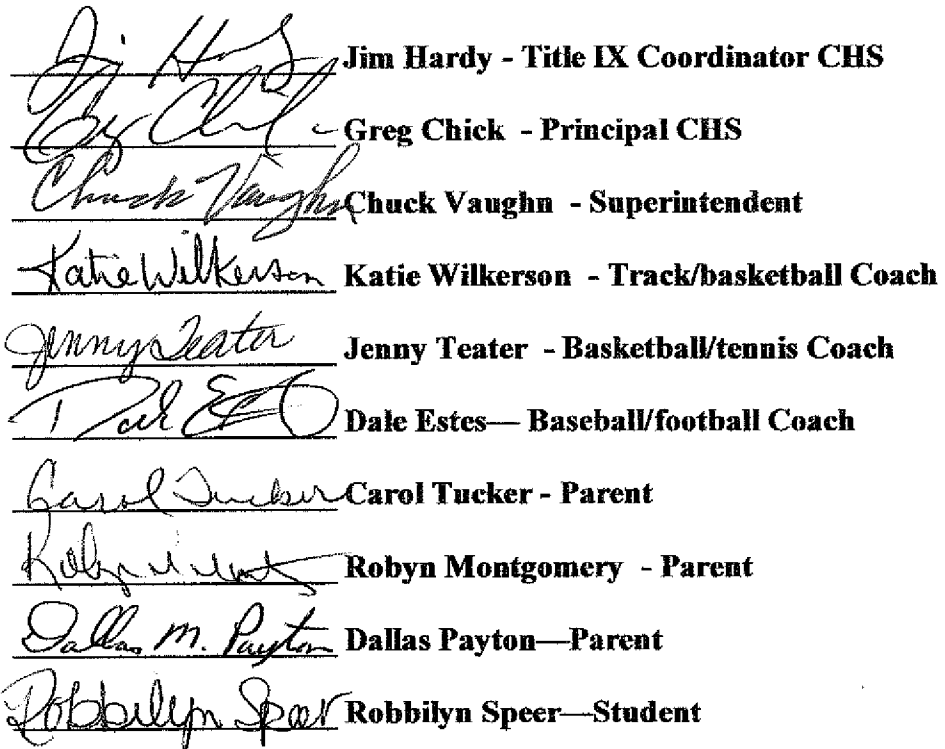 Jim Hardy Jim Hardy - Title IX Coordinator CHS
Greg Chick Greg Chick - Principal CHS
Chuck Vaughn Chuck Vaughn - Superintendent
Katie Wilkerson Katie Wilkerson - Track/basketball Coach
Jenny Teater Jenny Teater - Basketball/tennis Coach
Dale Dale Estes— Baseball/football Coach
Carol Tucker Carol Tucker - Parent
Robyn Robyn Montgomery - Parent
Dallas M. Payton Dallas Payton—Parent
Robbilyn Speer Robbilyn Speer—Student